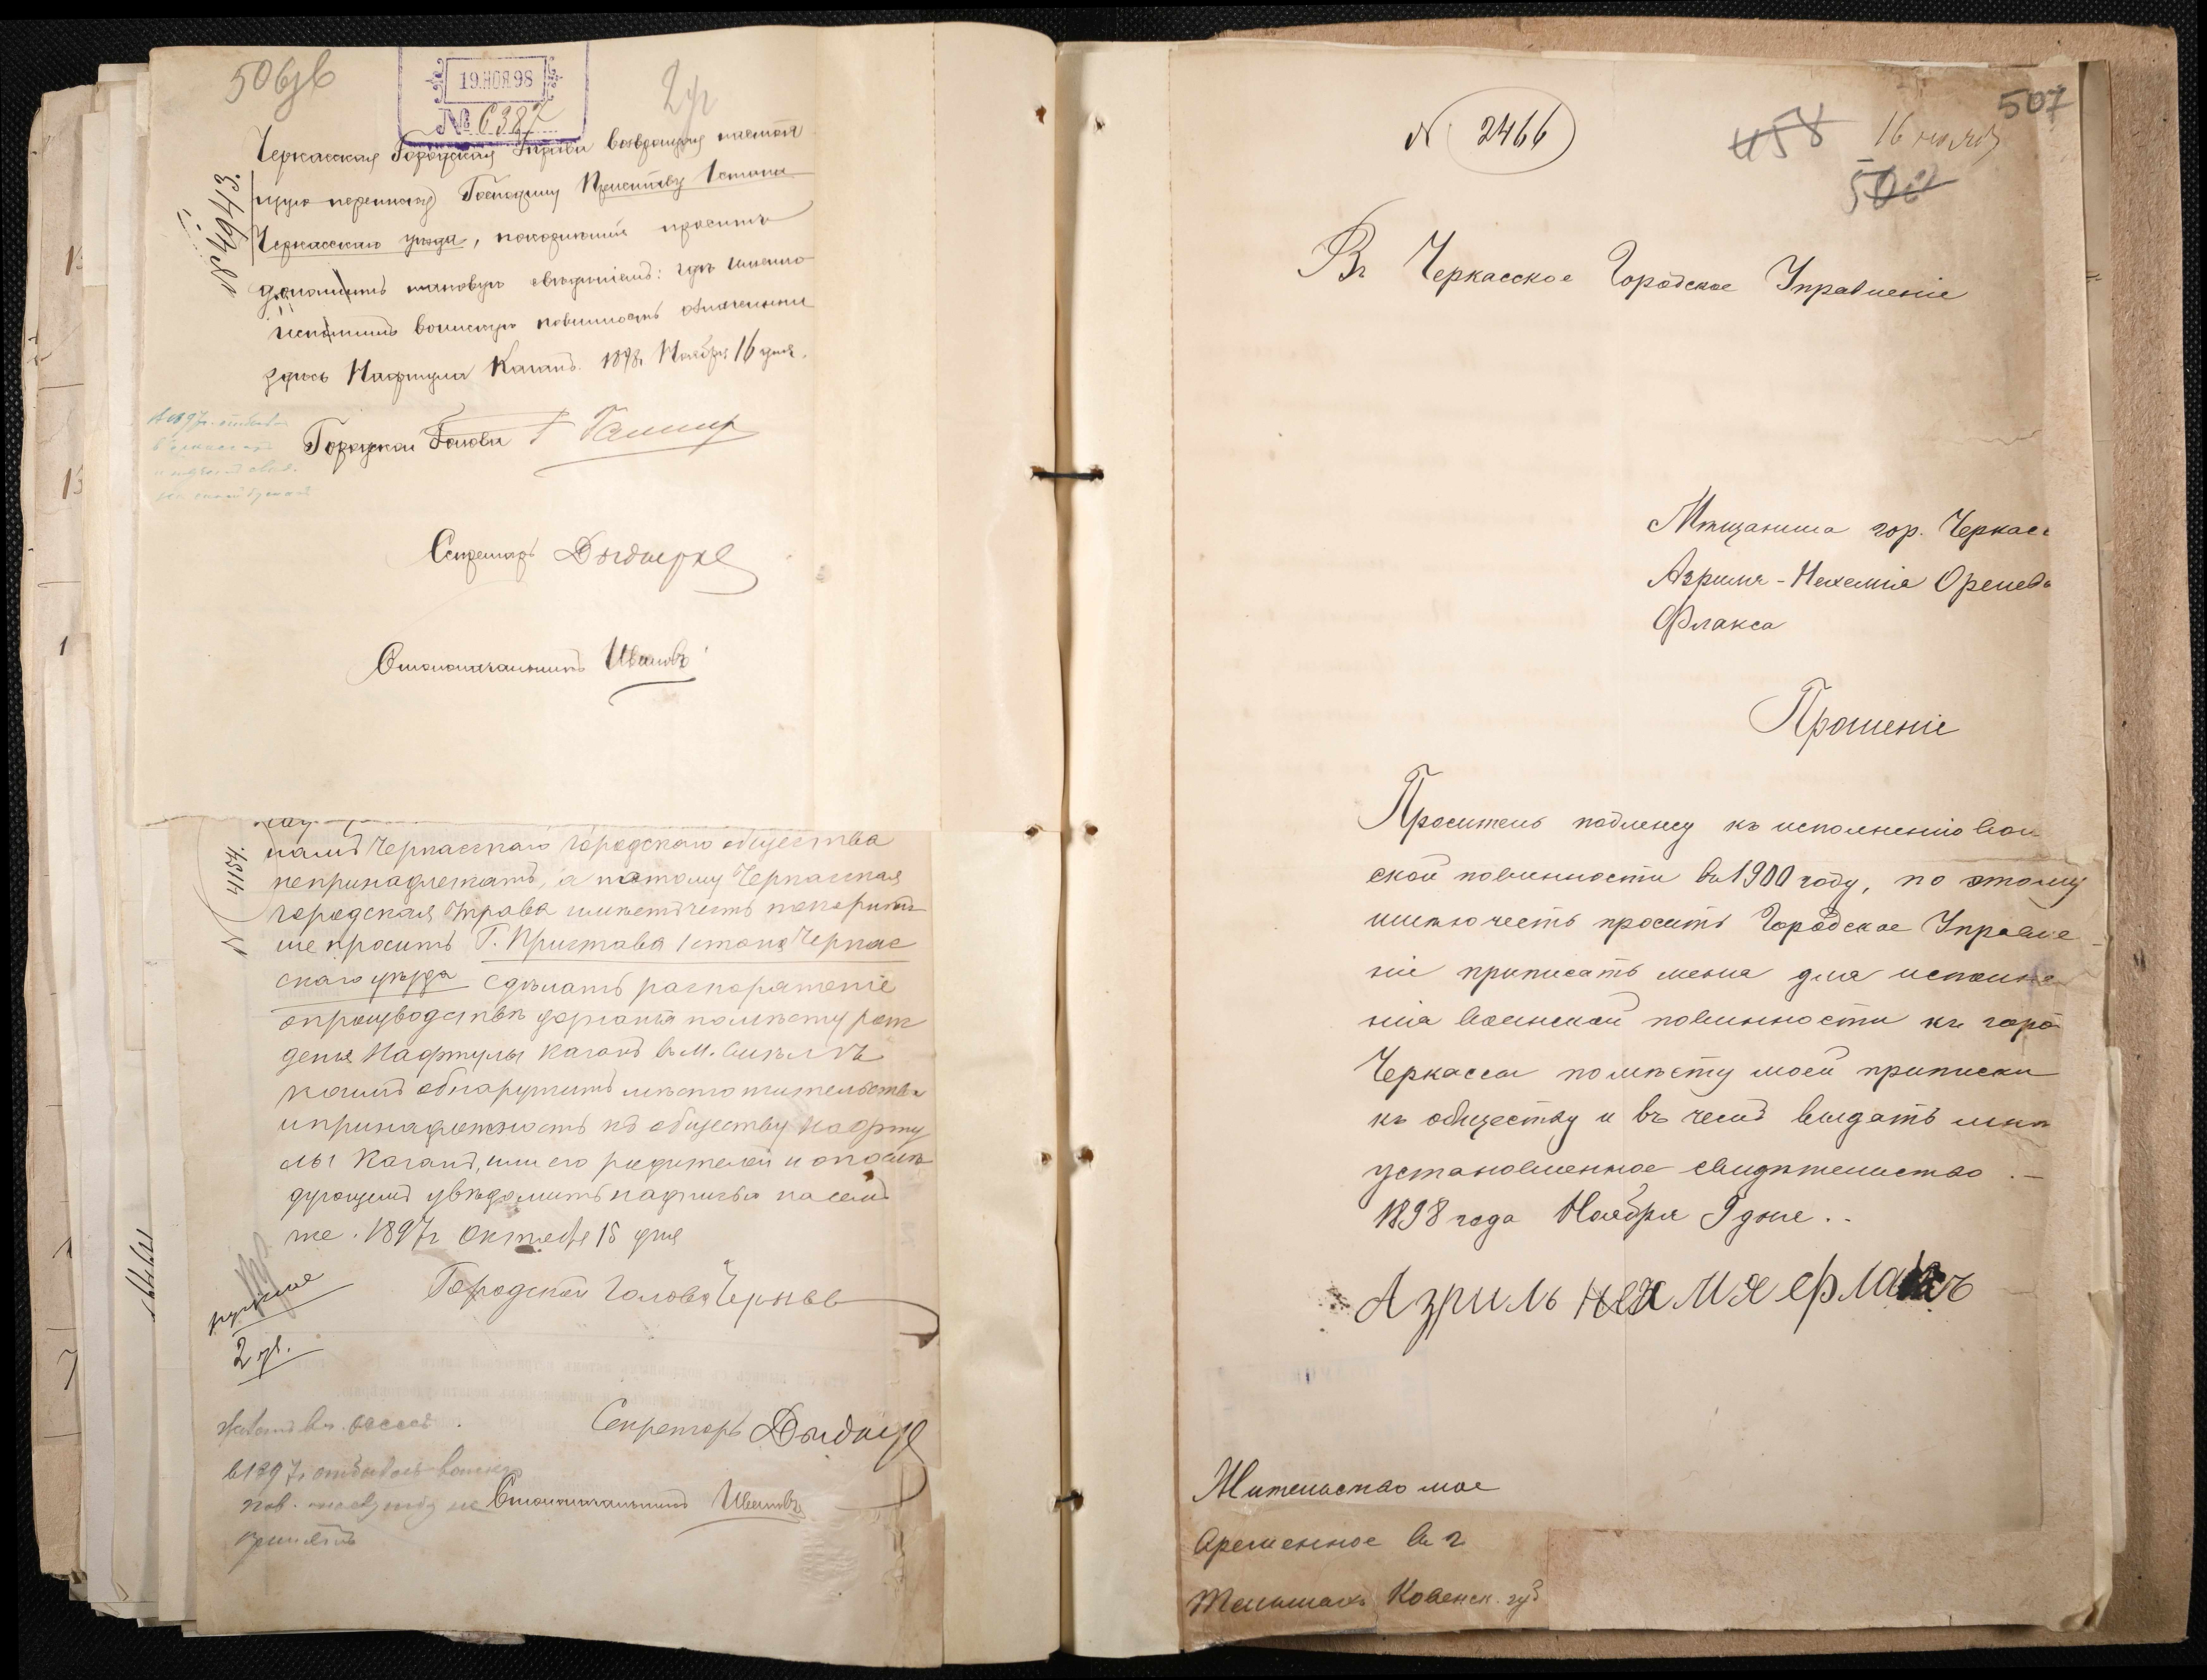 506зв
19.НОЯ.98
№ 6387
2уг
Черкасская Городская Управа возвращая настоя
щую переписку Господину Приставу 1 стана
Черкасскаго уѣзда, покорнѣйше проситъ
дополнить таковую свѣдѣніемъ: гдѣ именно
исполнилъ воинскую повинность означенный
здѣсь Нафтула Каганъ. 1898 г. Ноября 16 дня.
№ 4943
Городской Голова
Секретарь
Столоначальникъ Ивановъ
намъ Черкасскаго городскаго общества
непринадлежатъ, а потому Черкасская
городская Управа имѣетъ честь покорнѣй
ше просить Г. Пристава 1 стана Черкас
скаго уѣзда сдѣлать распоряженіе
о производствѣ дознанія по мѣсту рож
денія Нафтулы Каганъ въ м. Смѣлѣ
коимъ обнаружить мѣсто жительства
и принадлежность къ обществу Нафту
лы Каганъ, или его родителей и о послѣ
дующемъ увѣдомить надписью на семъ
же. 1897 г. Октября 15 дня
№ 4154
Городской Голова Черныв
2 уг.
Секретарь
в 1897 г. отбывалъ воинск.
пов.
Столоначальникъ Ивановъ
507
N 2466
458
16 ноября
500
Въ Черкасское Городское Управленіе
Мѣщанина гор. Черкас
Азриля-Нехемія Орелева
Флакса
Прошеніе
Проситель подлежу къ исполненію воин
ской повинности въ 1900 году, по этому
имѣю честь просить Городское Управле
ніе приписать меня для исполне
нія воинской повинности къ горо
Черкассы по мѣсту моей приписки
къ обществу и въ чемъ выдать мнѣ
установленное свидѣтельство. —
1898 года Ноября 9 дня..
Азриль Нехамя Флаксъ
Жительство мое
временное въ г.
Тельшахъ Ковенск. губ